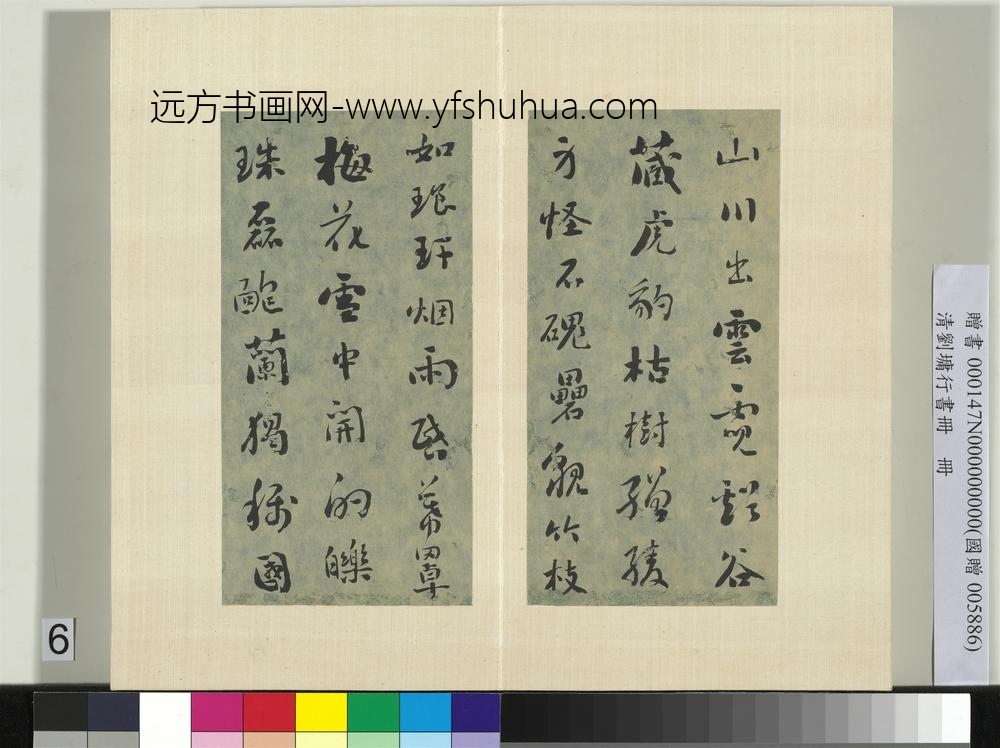 远方书画网-www.yfshuhua.com
山川出雲霓谿谷
藏虎豹枯樹矰
方怪石磈礨竹枝
如琅玕烟雨昏羃
梅花雪中開的皪
珠磊蘭獨稱國
贈書 000147N000000000(國贈 005886)
清劉墉行書冊 冊
6